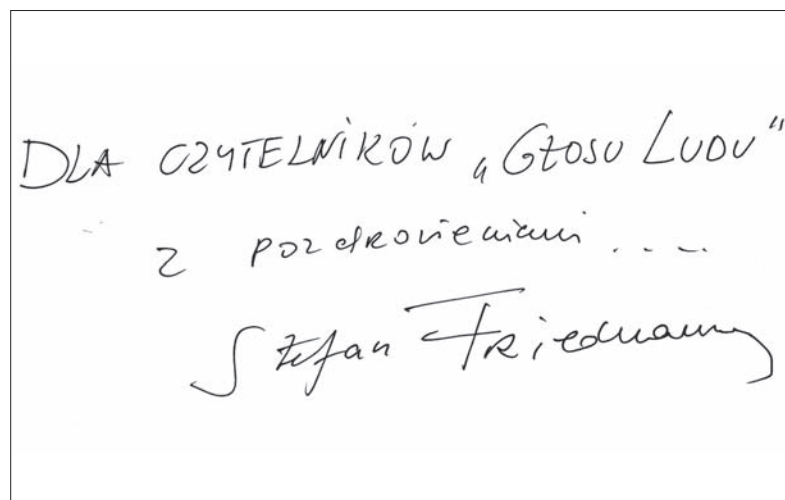 DLA CZYTELNIKÓW „GŁOSU LUDU”
z pozdrowieniami ....
Stefan Friedmann